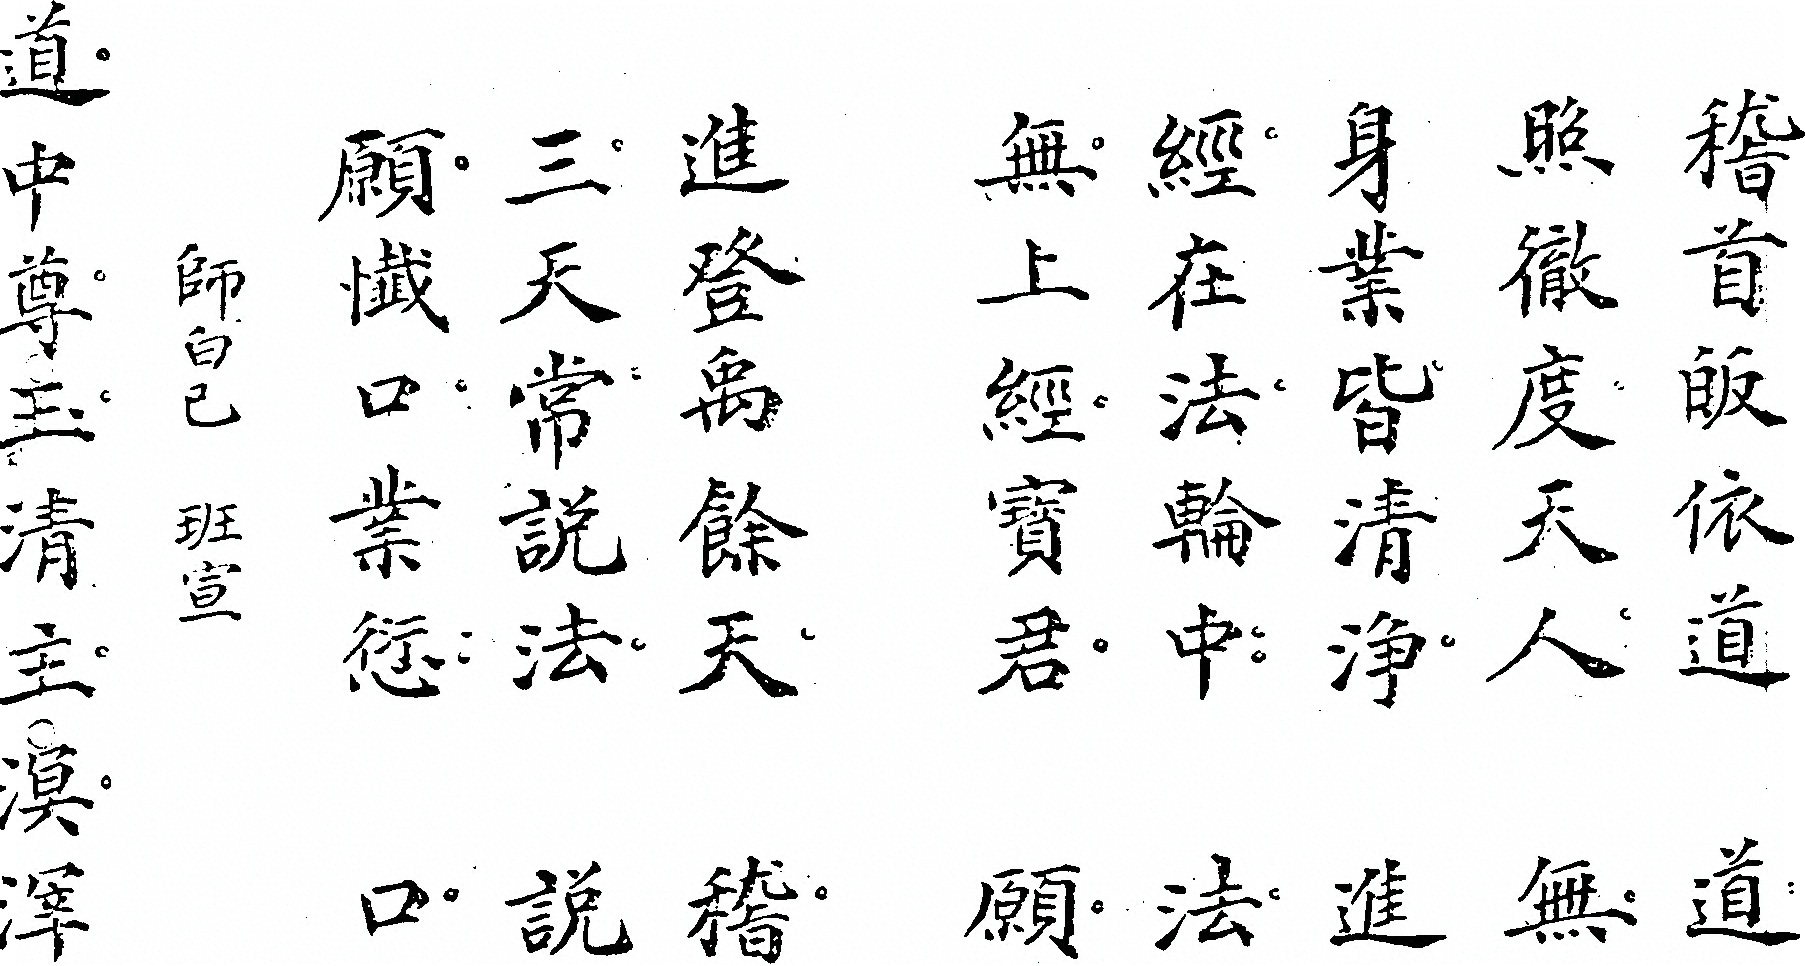 稽首皈依道 道
照徹度天人 無
身業皆清淨 進
經在法輪中 法
無上經寶君 願
進登禹餘天 稽
三天常説法 説
願懺口業愆 口
師白己 班宣
道中尊玉清主漠澤